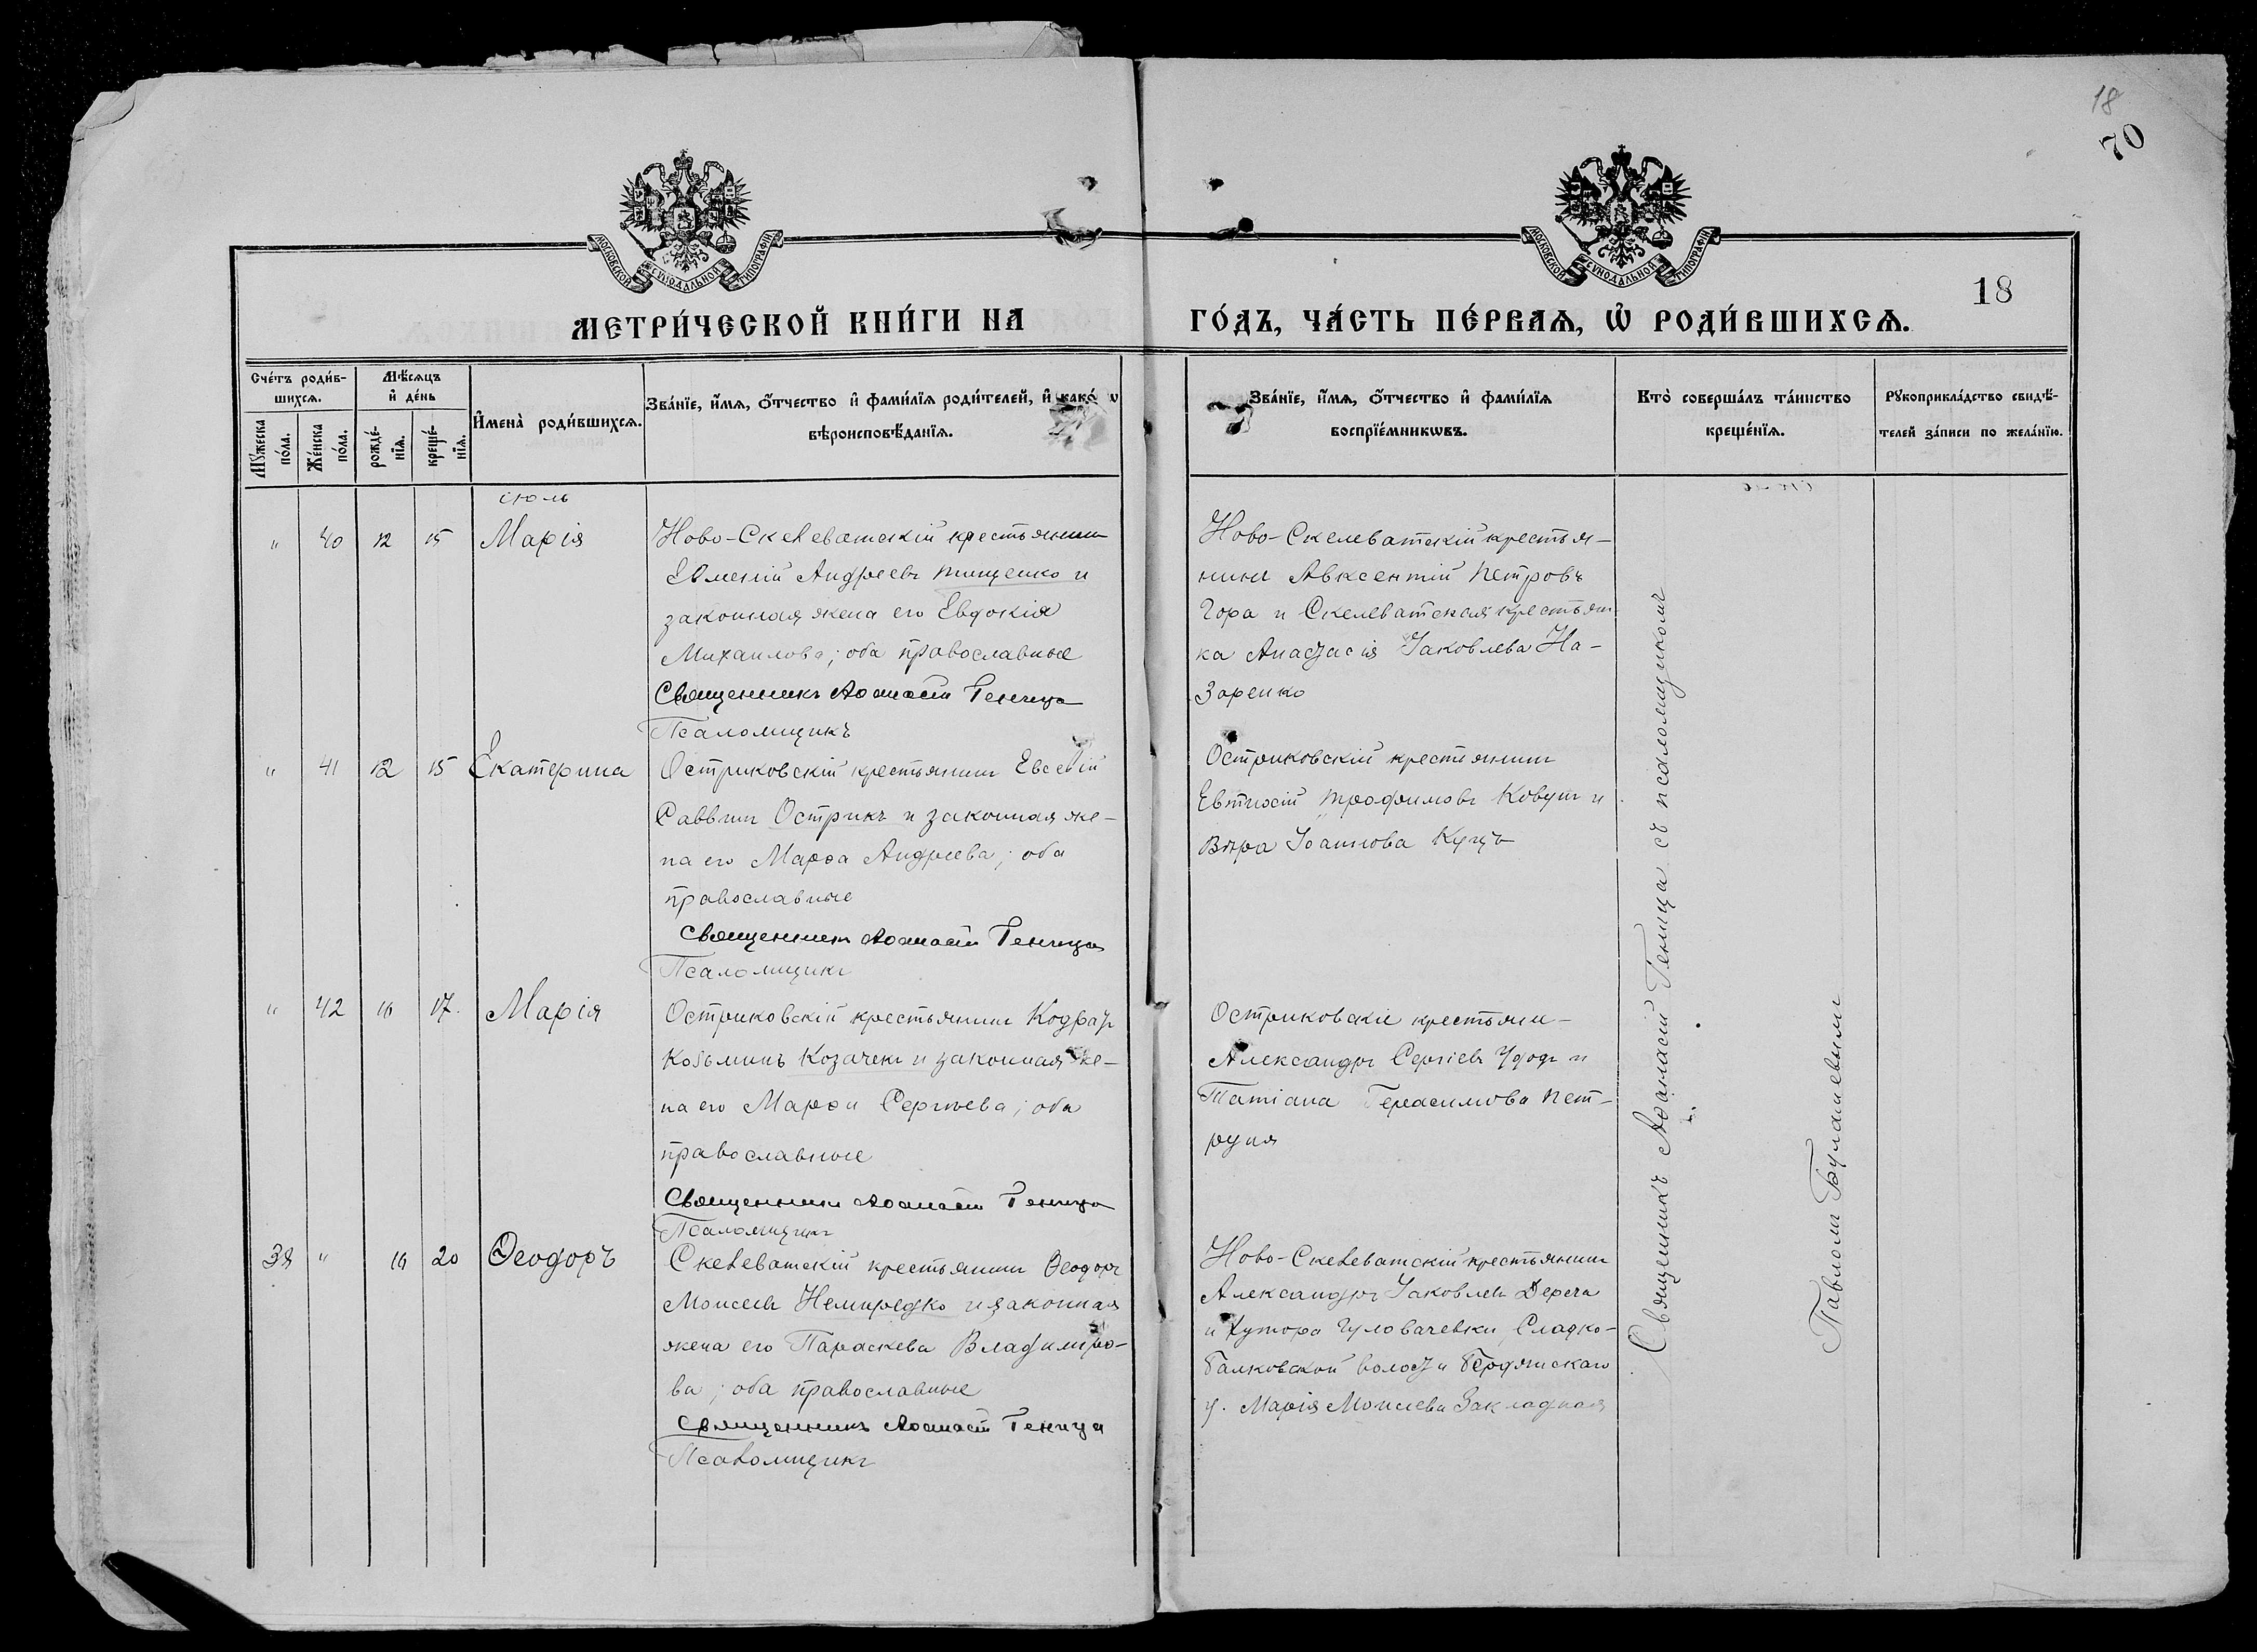 18
70
МОСКОВСКОЙ СѴНОДАЛЬНОЙ ТИПОГРАФІИ
МОСКОВСКОЙ СѴНОДАЛЬНОЙ ТИПОГРАФІИ
18
МЕТРИ́ЧЕСКОЙ КНИ́ГИ НА ГО́ДЪ, ЧА́СТЬ ПЕ́РВАЯ, Ѡ҆ РОДИ́ВШИХСЯ.
Сче́тъ роди́в-
шихся.
Мꙋ́жеска по́ла.
Же́нска по́ла.
Мѣ́сяцъ
и҆ де́нь
рожде́-нїя.
креще́-нїя.
И҆мена̀ роди́вшихся.
Зва́нїе, и҆́мя, ѻ҆́тчество и҆ фами́лїя роди́телей, и҆ како́гѡ
вѣроисповѣ́данїя.
Зва́нїе, и҆́мя, ѻ҆́тчество и҆ фами́лїя
воспрїе́мникѡвъ.
Кто̀ соверша́лъ та́инство
креще́нїя.
Рꙋкоприкла́дство свидѣ́-
телей за́писи по жела́нїю.
іюль
" 40 12 15 Марія
Ново-Скелеватскій крестьянинъ
Евменій Андреевъ Тищенко и
законная жена его Евдокія
Михаилова; оба православные
Священникъ Аѳанасій Геница
Псаломщикъ
Ново-Скелеватскій крестья-
нинъ Авксентій Петровъ
Гора и Скелеватская крестьян
ка Анастасія Іаковлева На-
заренко
" 41 12 15 Екатерина
Остриковскій крестьянинъ Евсевій
Саввинъ Острикъ и законная же-
на его Марѳа Андреева; оба
православные
Священникъ Аѳанасій Геница
Псаломщикъ
Остриковскій крестьянинъ
Евтихій Трофимовъ Ковтун и
Вѣра Іоаннова Куцъ
" 42 16 17 Марія
Остриковскій крестьянинъ Кодратъ
Козьминъ Козачекъ и законная же-
на его Марѳа Сергіева; оба
православные
Священникъ Аѳанасій Геница
Псаломщикъ
Остриковскіе крестьяне
Александръ Сергіевъ Удодъ и
Татіана Герасимова Пет-
руня
38 " 16 20 Ѳеодоръ
Скелеватскій крестьянинъ Ѳеодоръ
Моисеевъ Немиредко и законная
жена его Параскева Владиміро-
ва; оба православные
Священникъ Аѳанасій Геница
Псаломщикъ
Ново-Скелеватскій крестьянинъ
Александръ Іаковлевъ Дереча
и хутора Гуловачевки Сладко-
балковской волости Бердянскаго
у. Марія Моисеева Закладная
Священникъ Аѳанасій Геница съ псаломщикомъ
Павломъ Булашевымъ